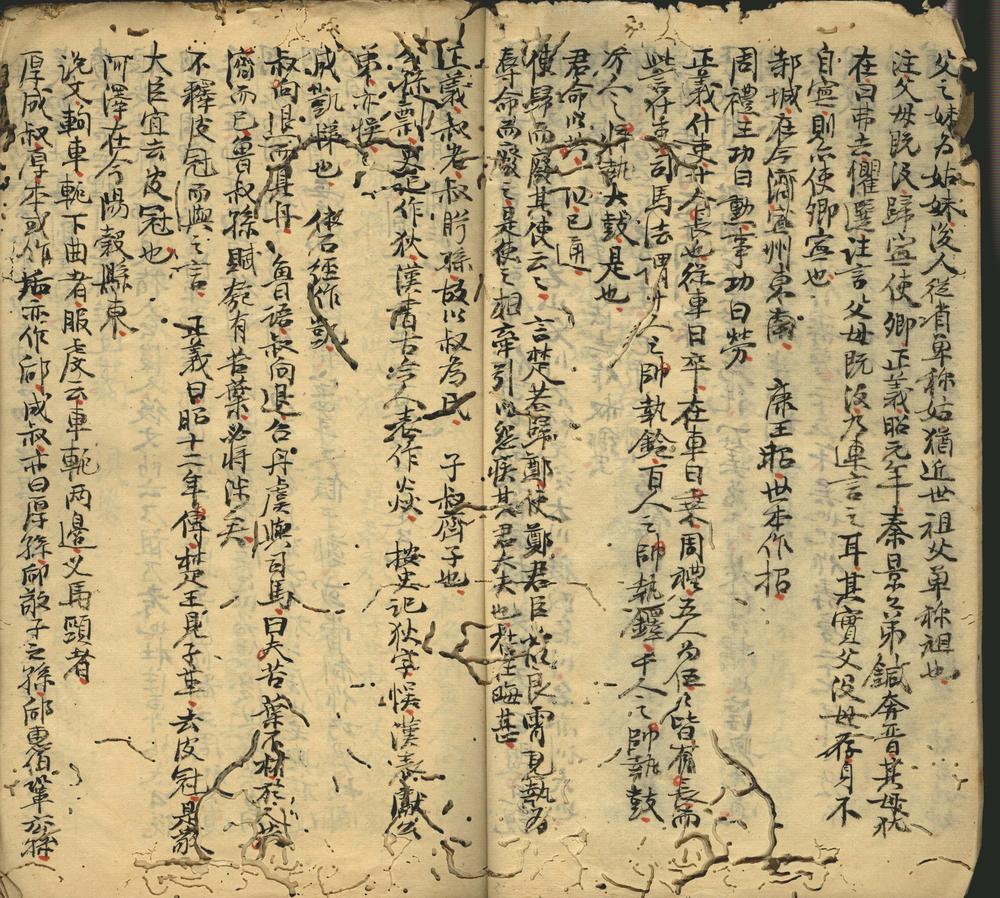 父之妹為姑妹後人從省單称姑猶近世祖父單称祖也
注父母既沒歸寧使卿 正義昭元年秦景公弟鍼奔晋其母犹
在曰弗去懼選注言父母既沒乃連言之耳其實父沒母存身不
自寧則亦使卿寧也
邿城在今濟寧州東南 康王昭世本作招
周禮王功曰勳事功曰勞
正義什吏十人長也徒車曰卒在車曰乗周禮五人為伍伍皆有長而
此言什吏司馬法謂十人之帥執鈴百人之帥執鐸千人之帥執鼓
万人之将執大鼓是也
君命以共 以已通
使歸而廢其使云云 言楚若歸鄭使鄭君臣
辱命而廢之是使之相牽引以怨疾其君大夫也杜注晦甚
正義叔老叔肸孫故以叔為氏 子叔齊子也
公孫剽史記作狄漢書古今人表作焱 按史記狄字悞漢表獻公
弟亦悞
成愷悌也 依石經作或
叔向退而具舟 魯語叔向退召舟虞與司馬曰夫苦葉不材於人共
濟而已魯叔孫賦匏有苦葉必将涉矣
不釋皮冠而與之言 正義曰昭十二年傳楚王見子革去皮冠是敬
大臣宜去皮冠也
阿澤在今陽穀縣東
说文軥車軛下曲者服虔云車軛两邊叉馬頸者
厚成叔厚本或作 亦作郈成叔亦曰厚孫郈敬子之孫郈惠伯鞏玄孫